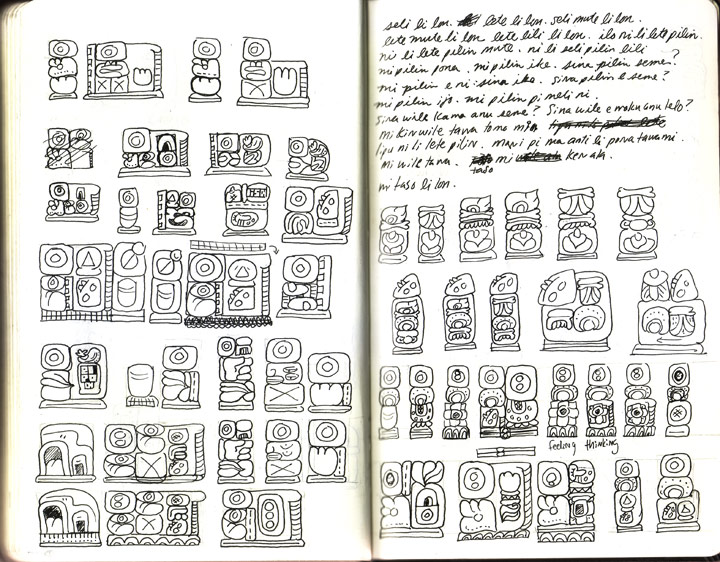 seli li lon. lete li lon. seli mute li lon.
lete mute li lon lete lili li lon. ilo ni li lete pilin.
ni li lete pilin mute. ni li seli pilin lili
mi pilin pona. mi pilin ike. sina pilin seme?
mi pilin e ni: sina ike. sina pilin e seme?
mi pilin ijo. mi pilin pi meli ni.
sina wile kama anu seme? Sina wile e moku anu telo?
mi kin wile tawa tomo mi
lipu ni li lete pilin. mani pi ma anti li pona tawa mi
mi wile tawa. mi ken ala.
taso
mi taso li lon.
feeling thinking